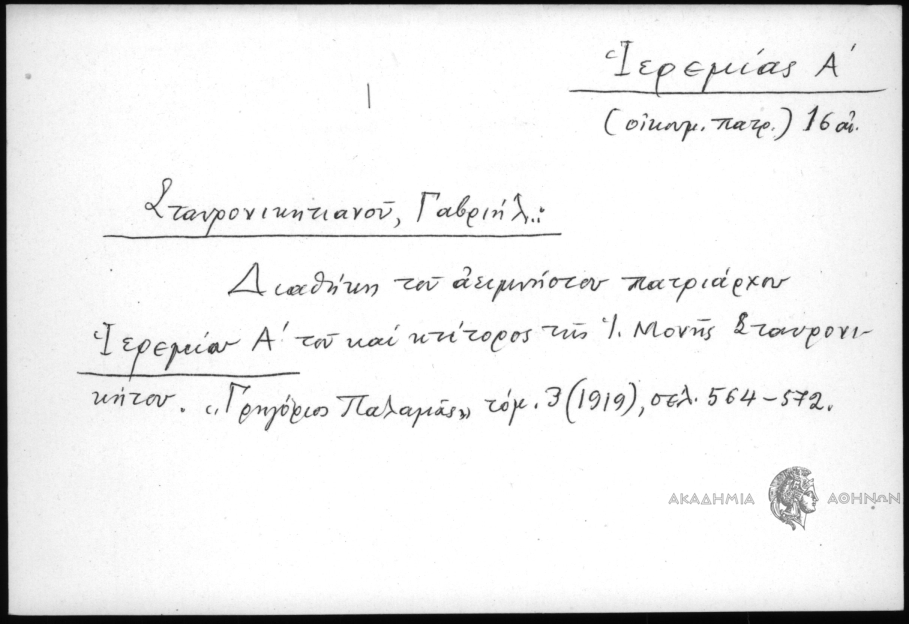 Ἱερεμίας Α΄
(οἰκουμ. πατρ.) 16 αἰ.
Σταυρονικητιανοῦ, Γαβριήλ..:
Διαθήκη τοῦ ἀειμνήστου πατριάρχου
Ἱερεμίου Α΄ τοῦ καί κτίτορος τῆς Ἱ. Μονῆς Σταυρονι-
κήτου. «Γρηγόριος Παλαμᾶς» τόμ. 3 (1919), σελ. 564-572.
ΑΚΑΔΗΜΙΑ ΑΘΗΝΩΝ